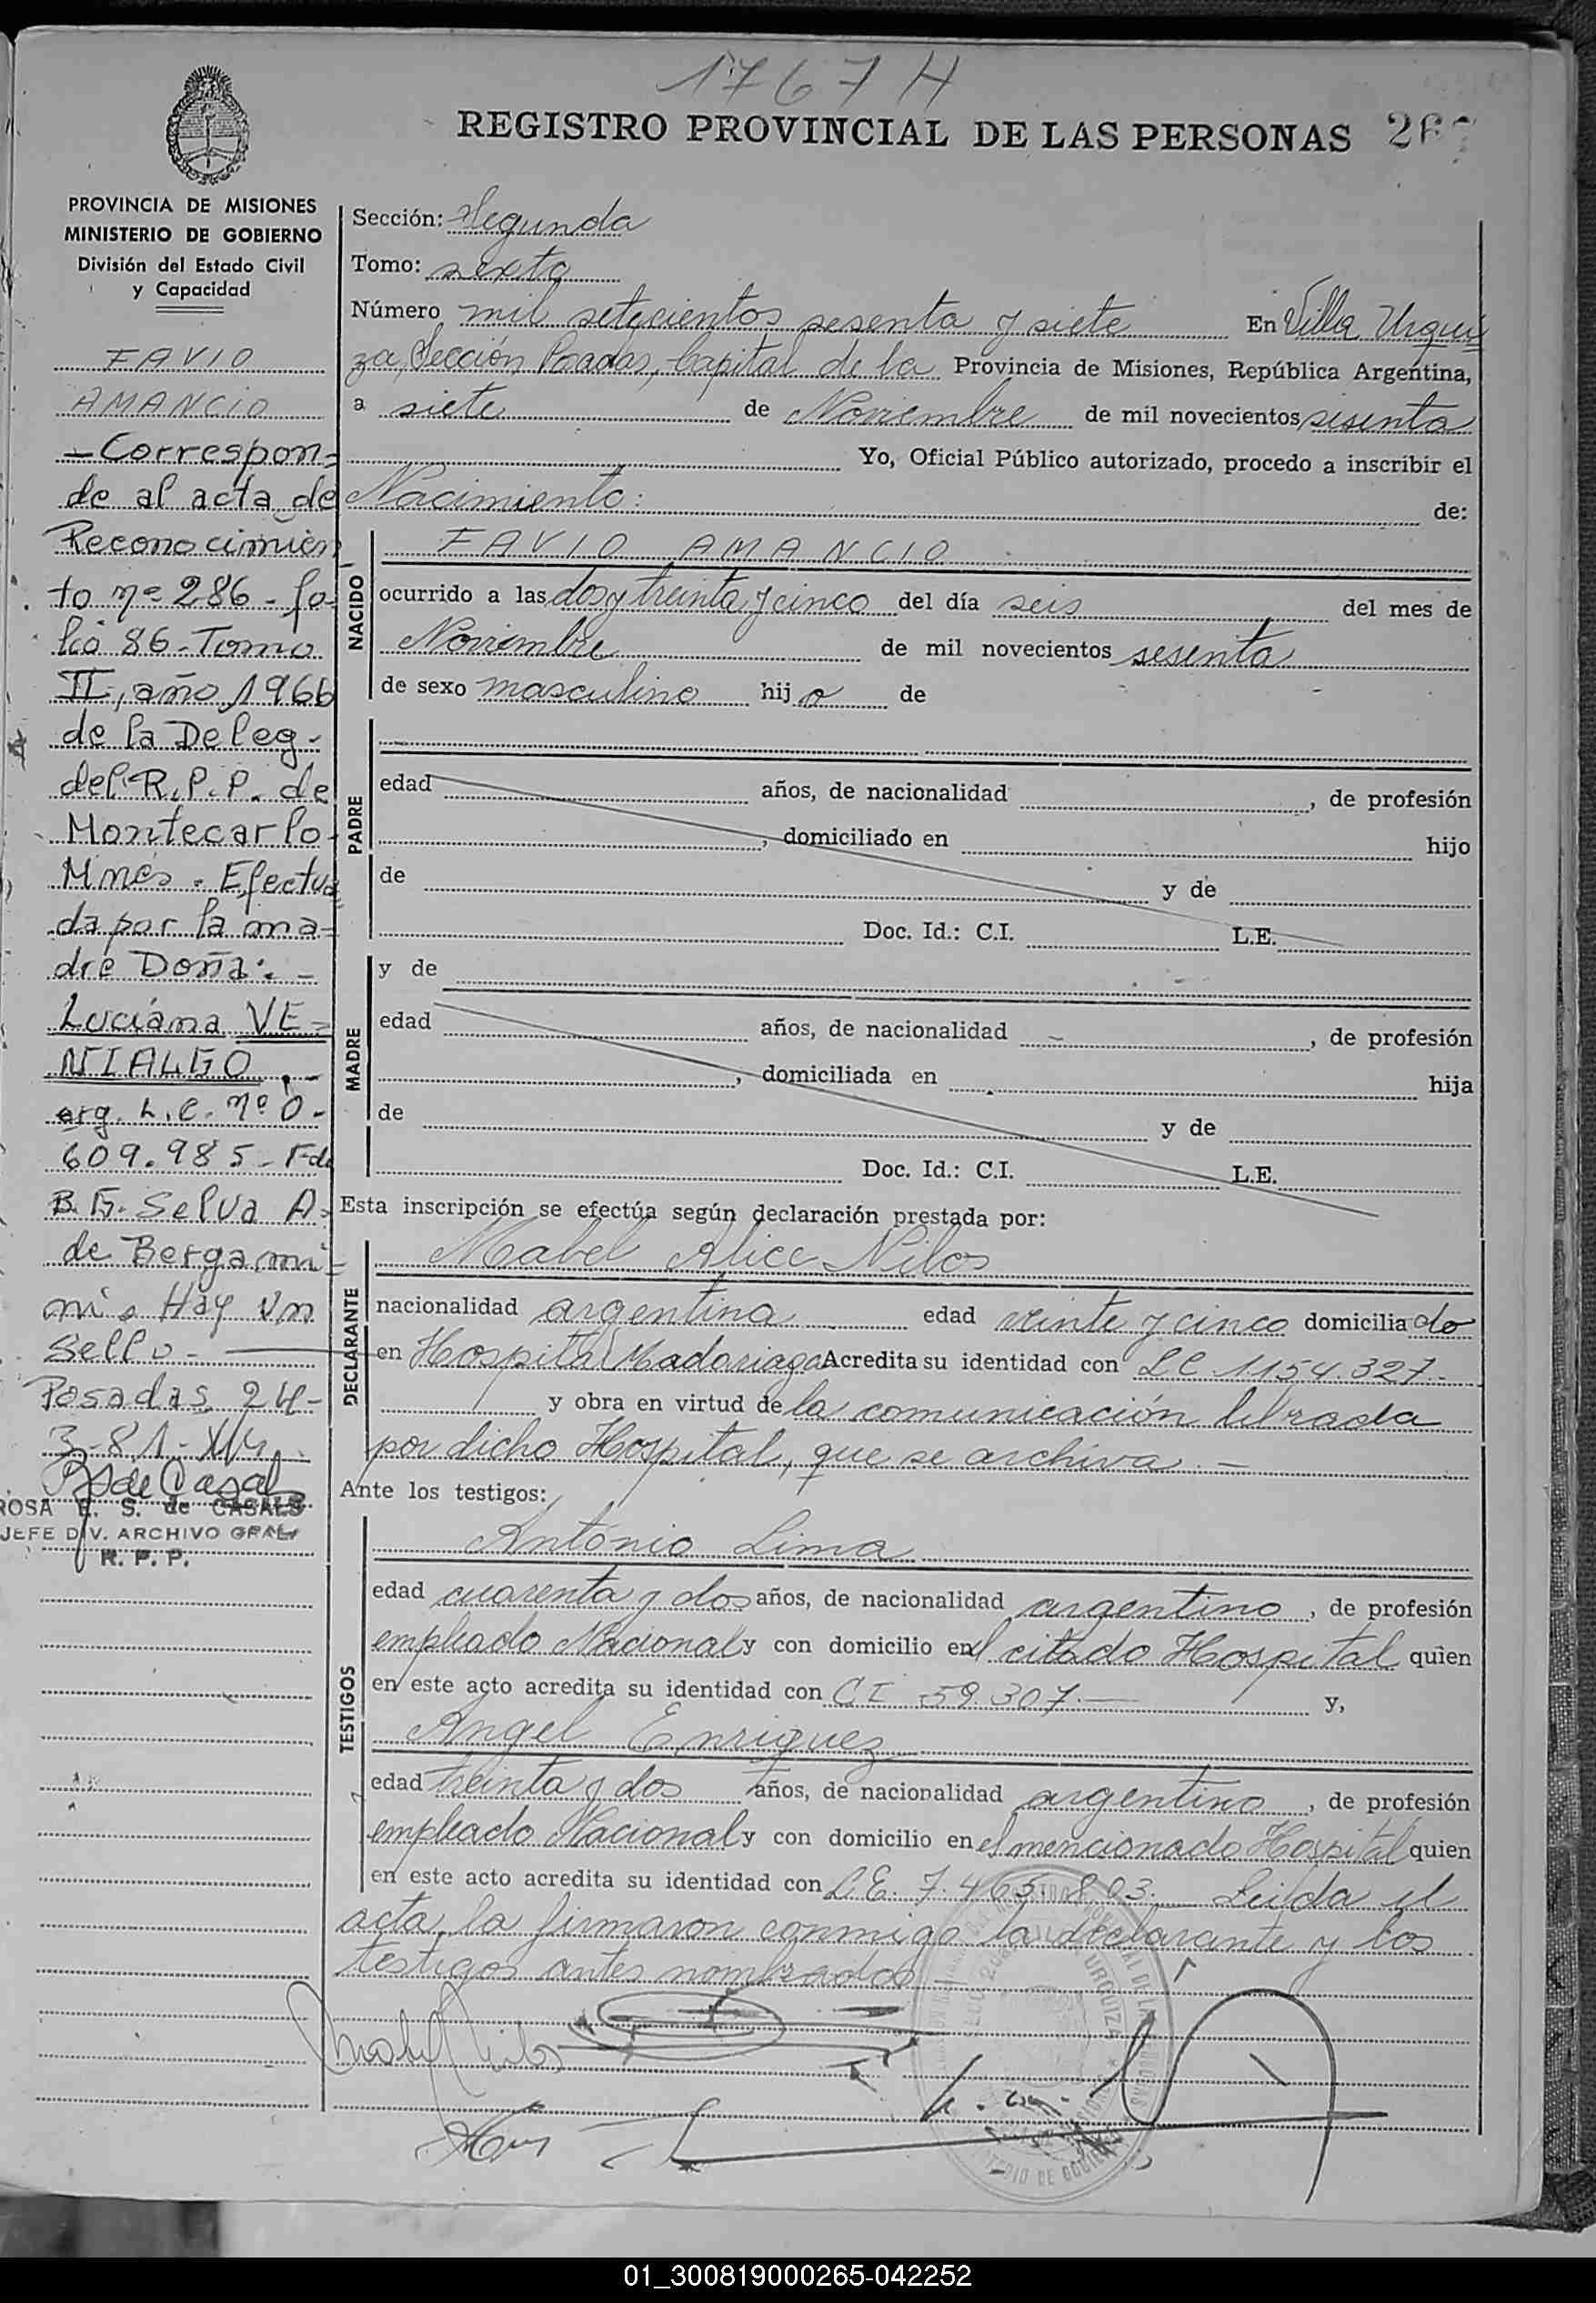 1767 H
REGISTRO PROVINCIAL DE LAS PERSONAS 26
PROVINCIA DE MISIONES
MINISTERIO DE GOBIERNO
División del Estado Civil
y Capacidad
FAVIO
AMANCIO
- Correspon=
de al acta de
Reconocimien
to nº 286 - fo-
lio 86 - Tomo
II, año 1966
de la Deleg-
del R.P.P. de
Montecarlo-
Mnes. Efectua
da por la ma-
dre Doña:. -
Luciana VE=
NIALGO . -
arg. L.C. nº 0-
609.985 - Fdo
B.G. Selva A=
de Bergami=
ni. Hay un
Sello -
Posadas 24-
3-81-
R S de Casals
ROSA E. S. de CASALS
JEFE DIV. ARCHIVO GRAL.
R. P. P.
Sección: Segunda
Tomo: sexto
Número mil setecientos sesenta y siete En Villa Urqui
za, Sección Posadas, Capital de la Provincia de Misiones, República Argentina,
a siete de Noviembre de mil novecientos sesenta
Yo, Oficial Público autorizado, procedo a inscribir el
Nacimiento: de:
NACIDO
FAVIO AMANCIO
ocurrido a las dos y treinta y cinco del día seis del mes de
Noviembre de mil novecientos sesenta
de sexo masculino hijo de
PADRE
edad años, de nacionalidad , de profesión
, domiciliado en hijo
de y de
Doc. Id.: C.I. L.E.
MADRE
y de
edad años, de nacionalidad , de profesión
, domiciliada en hija
de y de
Doc. Id.: C.I. L.E.
Esta inscripción se efectúa según declaración prestada por:
DECLARANTE
Mabel Alice Nilos
nacionalidad argentina edad veinte y cinco domiciliado
en Hospital Madariaga Acredita su identidad con LC 1154.327-
y obra en virtud de la comunicación librada
por dicho Hospital, que se archiva. -
Ante los testigos:
TESTIGOS
Antonio Lima
edad cuarenta y dos años, de nacionalidad argentino , de profesión
empleado Nacional y con domicilio en el citado Hospital quien
en este acto acredita su identidad con CI 59.307 - y,
Angel Enriquez
edad treinta y dos años, de nacionalidad argentino , de profesión
empleado Nacional y con domicilio en el mencionado Hospital quien
en este acto acredita su identidad con L.E. 7.465.803. Leida el
acta, la firmaron conmigo la declarante y los
testigos antes nombrados
Mabel Nilos
URQUIZA
01_300819000265-042252